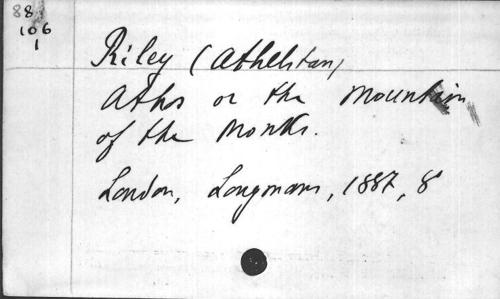 88
106
1
Riley (Athelstan)
Athos or the Mountain
of the Monks.
London, Longmans, 1887, 8°